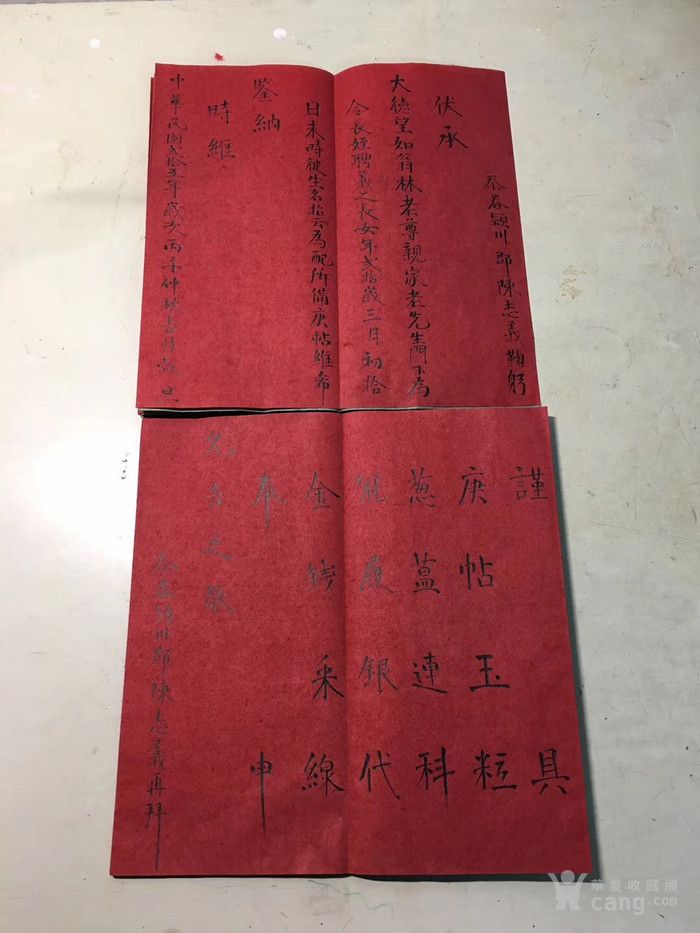 忝眷潁川郡陳志義鞠躬
伏承
大德望如翁林老尊親家老先生門下為
令長姪聘義之長女年弍拾歲三月初拾
日未時健生名拾云為配所備庚帖維希
鑒納
時維
中華民國弍拾五年歲次丙子仲秋之月穀旦
謹具
庚帖玉粒
蔥蒀連科
冠履銀代
金錢采線
奉申
文敬
忝眷潁川郡陳志義再拜
華夏收藏網
cang.com